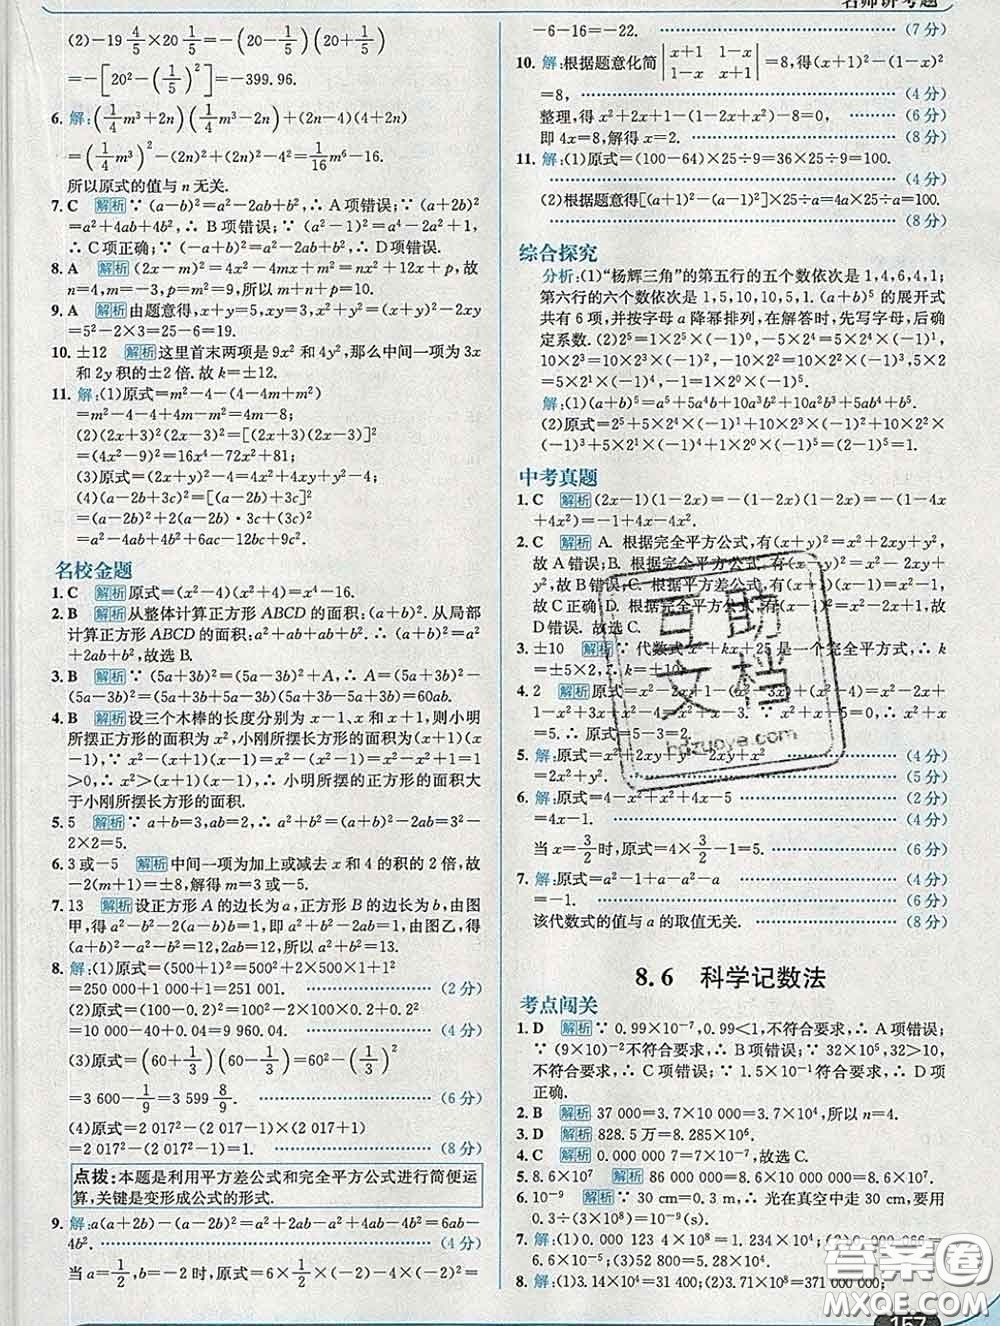 名师讲考题
(2)-19 4/5×20 1/5=-(20-1/5)(20+1/5)
=-[20²-(1/5)²]=-399.96.
6. 解:(1/4m³+2n)(1/4m³-2n)+(2n-4)(4+2n)
=(1/4m³)²-(2n)²+(2n)²-4²=1/16m⁶-16.
所以原式的值与 n 无关.
7. C 解析 ∵ (a-b)²=a²-2ab+b²,∴ A项错误;∵ (a+2b)²
=a²+4ab+4b²,∴ B项错误;∵ (a²-1)²=a⁴-2a²+1,
∴ C项正确;∵ (-a+b)²=a²-2ab+b²,∴ D项错误.
8. A 解析 (2x-m)²=4x²-4mx+m²=nx²+12x+p,故
n=4,m=-3,p=m²=9.所以m+n+p=10.
9. A 解析 由题意得,x+y=5,xy=3,x²+y²=(x+y)²-2xy
=5²-2×3=25-6=19.
10. ±12 解析 这里首末两项是9x²和4y²,那么中间一项为3x
和2y积的±2倍.故k=±12.
11. 解:(1)原式=m²-4-(4-4m+m²)
=m²-4-4+4m-m²=4m-8;
(2)(2x+3)²(2x-3)²=[(2x+3)(2x-3)]²
=(4x²-9)²=16x⁴-72x²+81;
(3)原式=(2x+y)²-4=4x²+4xy+y²-4;
(4)(a-2b+3c)²=[(a-2b)+3c]²
=(a-2b)²+2(a-2b)·3c+(3c)²
=a²-4ab+4b²+6ac-12bc+9c².
名校金题
1. C 解析 原式=(x²-4)(x²+4)=x⁴-16.
2. B 解析 从整体计算正方形ABCD的面积:(a+b)².从局部
计算正方形ABCD的面积:a²+ab+ab+b².∴ (a+b)²=a²
+2ab+b²,故选B.
3. B 解析 ∵ (5a+3b)²=(5a-3b)²+A,∴ A=(5a+3b)²-
(5a-3b)²=(5a+3b+5a-3b)(5a+3b-5a+3b)=60ab.
4. B 解析 设三个木棒的长度分别为x-1,x和x+1,则小明
所摆正方形的面积为x²,小刚所摆长方形的面积为(x+1)(x
-1),∵ x²-(x+1)(x-1)=x²-(x²-1)=x²-x²+1=1>0,
∴ x²>(x+1)(x-1),∴ 小明所摆的正方形的面积大
于小刚所摆长方形的面积.
5. 5 解析 ∵ a+b=3,ab=2,∴ a²+b²=(a+b)²-2ab=3²-
2×2=5.
6. 3或-5 解析 中间一项为加上或减去x和4的积的2倍,故
-2(m+1)=±8,解得m=3或-5.
7. 13 解析 设正方形A的边长为a,正方形B的边长为b,由图
甲,得a²-b²-2(a-b)b=1,即a²+b²-2ab=1,由图乙,得
(a+b)²-a²-b²=12,2ab=12,所以a²+b²=13.
8. 解:(1)原式=(500+1)²=500²+2×500×1+1²=
250 000+1 000+1=251 001. (2分)
(2)原式=(100-0.2)²=100²-2×100×0.2+0.2²
=10 000-40+0.04=9 960.04. (4分)
(3)原式=(60+1/3)(60-1/3)=60²-(1/3)²
=3 600-1/9=3 599 8/9. (6分)
(4)原式=2 017²-(2 017-1)×(2 017+1)
=2 017²-(2 017²-1)=1. (8分)
点拨:本题是利用平方差公式和完全平方公式进行简便运
算,关键是变形成公式的形式.
9. 解:a(a+2b)-(a-2b)²=a²+2ab-a²+4ab-4b²=6ab-
4b². (4分)
当a=1/2,b=-2时,原式=6×1/2×(-2)-4×(-2)²=
-6-16=-22. (7分)
10. 解:根据题意化简|x+1 1-x
1-x x+1|=8,得(x+1)²-(1-x)²
=8, (4分)
整理,得x²+2x+1-(1-2x+x²)-8=0, (6分)
即4x=8,解得x=2. (8分)
11. 解:(1)原式=(100-64)×25÷9=36×25÷9=100.
(4分)
(2)根据题意得[(a+1)²-(a-1)²]×25÷a=4a×25÷a=100.
(8分)
综合探究
分析:(1)“杨辉三角”的第五行的五个数依次是1,4,6,4,1;
第六行的六个数依次是1,5,10,10,5,1.(a+b)⁵的展开式
共有6项,并按字母a降幂排列,在解答时,先写字母,后确
定系数.(2)2⁵=1×2⁵×(-1)⁰,-5×2⁴=5×2⁴×(-1)¹,
10×2³=10×2³×(-1)²,-10×2²=10×2²×(-1)³,5×2
=5×2¹×(-1)⁴,-1=1×2⁰×(-1)⁵.
解:(1)(a+b)⁵=a⁵+5a⁴b+10a³b²+10a²b³+5ab⁴+b⁵.
(2)原式=2⁵+5×2⁴×(-1)¹+10×2³×(-1)²+10×2²×
(-1)³+5×2¹×(-1)⁴+1×2⁰×(-1)⁵=(2-1)⁵=1.
中考真题
1. C 解析 (2x-1)(1-2x)=-(1-2x)(1-2x)=-(1-4x
+4x²)=-1+4x-4x².
2. C 解析 A. 根据完全平方公式,有(x+y)²=x²+2xy+y²,
故A错误;B. 根据完全平方公式,有(x-y)²=x²-2xy+
y²,故B错误;C. 根据平方差公式,有(x+y)(x-y)=x²-
y²,故C正确;D. 根据完全平方公式,有(x+y)²=x²+2xy+y²,故
D错误.故选C.
3. ±10 解析 ∵ 代数式x²+kx+25是一个完全平方式,∴ k
=±5×2,∴ k=±10.
4. 2 解析 原式=x²-2x+1-
=5.∴ 原式=5-3=2.
5. 解:原式=x²+2xy+y² (4分)
=2x²+y². (5分)
6. 解:原式=4-x²+x²+4x-5 (2分)
=4x-1. (4分)
当x=3/2时,原式=4×3/2-1=5. (6分)
7. 解:原式=a²+1-a²-a (4分)
=-1. (6分)
该代数式的值与a的取值无关. (8分)
8.6 科学记数法
考点闯关
1. D 解析 ∵ 0.99×10⁻⁷,0.99<1,不符合要求,∴ A项错误;
∵ (9×10)⁻²不符合要求,∴ B项错误;∵ 32×10⁵,32>10,
不符合要求,∴ C项错误;∵ 1.5×10⁻⁸符合要求,∴ D项
正确.
2. B 解析 37 000=3.7×10 000=3.7×10⁴,所以n=4.
3. D 解析 828.5万=8 285 000=8.285×10⁶.
4. C 解析 0.000 000 7=7×10⁻⁷,故选C.
5. 8.6×10⁷ 解析 86 000 000=8.6×10 000 000=8.6×10⁷.
6. 10⁻⁹ 解析 ∵ 30 cm=0.3 m,∴ 光在真空中走30 cm,要用
0.3÷(3×10⁸)=10⁻⁹(s).
7. 解:(1)0.000 123 4=1.234×10⁻⁴;(2)-0.000 006 6=
6.6×10⁻⁶;(3)52 000=5.2×10⁴.
8. 解:(1)3.14×10⁴=31 400;(2)3.71×10⁸=371 000 000;
157
互助
文档
hdzuoye.com
答案圈
MXQE.COM